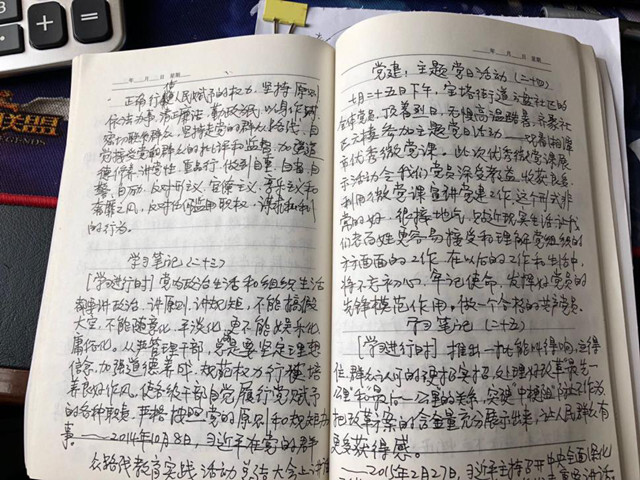 年 月 日 星期
正确行使人民赋予的权力,坚持原则
依法办事,清正廉洁,勤政为民,以身作则
密切联系群众,坚持走党的群众路线,自
觉接受党的群众的批评和监督,加强道
德修养,讲党性、重品行、做到自重、自省、自
警、自励,反对形式主义、官僚主义、享乐主义和
奢靡之风,反对任何滥用职权、谋求私利
的行为。
学习笔记(二十三)
[学习进行时] 党内政治生活和组织生活
都要讲政治、讲原则、讲规矩,不能搞假
大空,不能随意化、平淡化,更不能娱乐化、
庸俗化。从严管理干部,总是要坚定理想
信念,加强道德养成,规范权力行使,培
养良好作风,使各级干部自觉履行党赋予
的各种职责,严格按照党的原则和规矩办
事。
——2014年10月8日,习近平在党的群
众路线教育实践活动总结大会上讲
年 月 日 星期
党建,主题党日活动(二十四)
七月二十五日下午,宝塔街道 社区的
全体党员,顶着烈日,无惧高温酷暑,齐聚社
区支持参加主题党日活动——观看湘潭
市优秀微党课。此次优秀微党课展
示活动令我们党员深受教益,收获良多,
利用微党课宣讲党建工作,这个形式非
常的好,很接地气,贴近现实生活,让我
们老百姓更容易接受和理解党组织的
方方面面的工作。在以后的工作和生活中,
将不忘初心、牢记使命,发挥好党员的
先锋模范作用,做一个合格的共产党员。
学习笔记(二十五)
[学习进行时] 推出一批能叫得响、立得
住、群众认可的硬招实招,处理好改革“最先一
公里”和“最后一公里”的关系,突破“中梗阻”,防止不作为,
把改革方案的含金量充分展示出来,让人民群众有
更多获得感。
——2015年2月27日,习近平主持召开中央全面深化